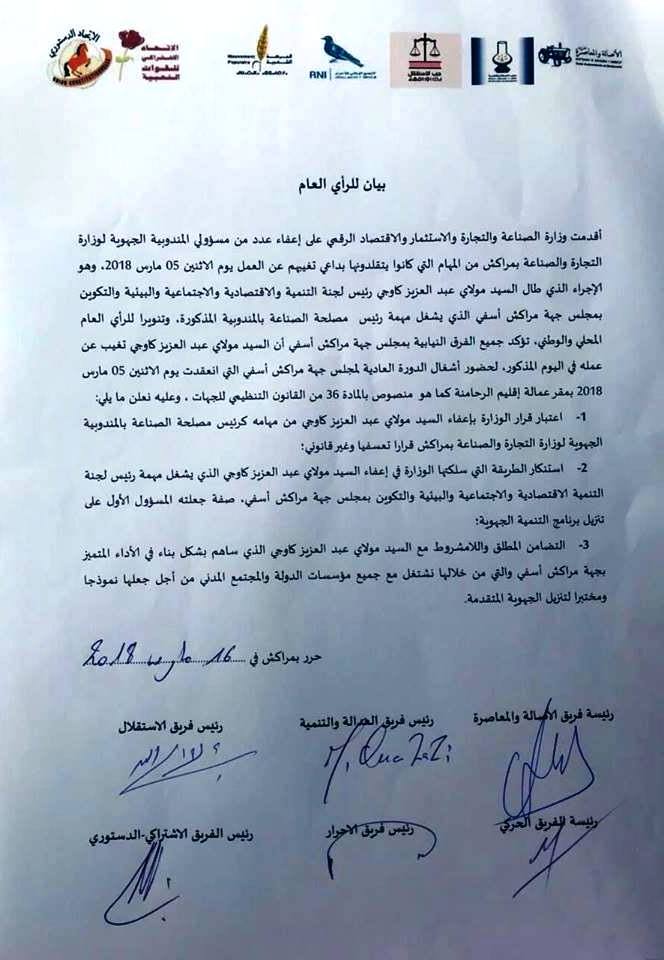 الأصالة والمعاصرة
حزب الاستقلال
RNI
Mouvement Populaire
الحركة الشعبية
الاتحاد الاشتراكي للقوات الشعبية
الإتحاد الدستوري
UNION CONSTITUTIONNELLE
بيان للرأي العام
أقدمت وزارة الصناعة والتجارة والاستثمار والاقتصاد الرقمي على إعفاء عدد من مسؤولي المندوبية الجهوية لوزارة
التجارة والصناعة بمراكش من المهام التي كانوا يتقلدونها بداعي تغيبهم عن العمل يوم الاثنين 05 مارس 2018، وهو
الإجراء الذي طال السيد مولاي عبد العزيز كاوجي رئيس لجنة التنمية والاقتصادية والاجتماعية والبيئية والتكوين
بمجلس جهة مراكش أسفي الذي يشغل مهمة رئيس مصلحة الصناعة بالمندوبية المذكورة، وتنويرا للرأي العام
المحلي والوطني، تؤكد جميع الفرق النيابية بمجلس جهة مراكش أسفي أن السيد مولاي عبد العزيز كاوجي تغيب عن
عمله في اليوم المذكور، لحضور أشغال الدورة العادية لمجلس جهة مراكش أسفي التي انعقدت يوم الاثنين 05 مارس
2018 بمقر عمالة إقليم الرحامنة كما هو منصوص بالمادة 36 من القانون التنظيمي للجهات ، وعليه نعلن ما يلي:
1- اعتبار قرار الوزارة بإعفاء السيد مولاي عبد العزيز كاوجي من مهامه كرئيس مصلحة الصناعة بالمندوبية
الجهوية لوزارة التجارة والصناعة بمراكش قرارا تعسفيا وغير قانوني؛
2- استنكار الطريقة التي سلكتها الوزارة في إعفاء السيد مولاي عبد العزيز كاوجي الذي يشغل مهمة رئيس لجنة
التنمية الاقتصادية والاجتماعية والبيئية والتكوين بمجلس جهة مراكش أسفي، صفة جعلته المسؤول الأول على
تنزيل برنامج التنمية الجهوية؛
3- التضامن المطلق واللامشروط مع السيد مولاي عبد العزيز كاوجي الذي ساهم بشكل بناء في الأداء المتميز
بجهة مراكش أسفي والتي من خلالها نشتغل مع جميع مؤسسات الدولة والمجتمع المدني من أجل جعلها نموذجا
ومختبرا لتنزيل الجهوية المتقدمة.
حرر بمراكش في 16 مارس 2018
رئيسة فريق الأصالة والمعاصرة رئيس فريق العدالة والتنمية رئيس فريق الاستقلال
رئيسة الفريق الحركي رئيس فريق الاحرار رئيس الفريق الاشتراكي-الدستوري